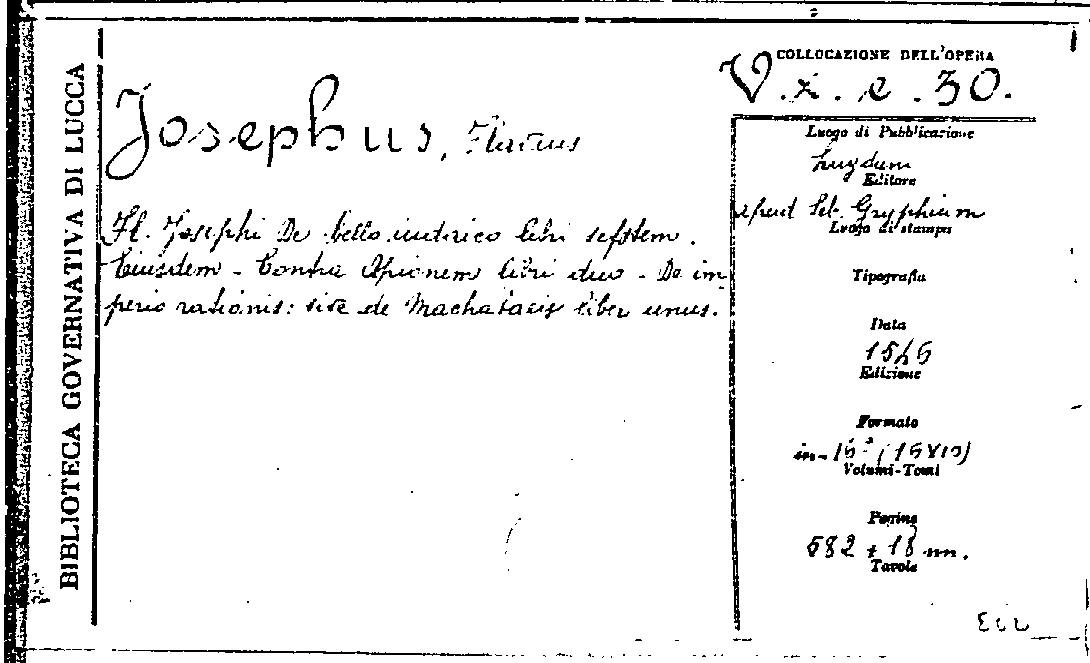 BIBLIOTECA GOVERNATIVA DI LUCCA
Josephus, Flavius
Fl. Josephi De bello iudaico libri septem.
Eiusdem - Contra Apionem libri duo - De im-
perio rationis: sive de Machabaeis liber unus.
COLLOCAZIONE DELL'OPERA
V. x. e. 30.
Luogo di Pubblicazione
Lugduni
Editore
apud Seb. Gryphium
Luogo di stampa
Tipografia
Data
Edizione
Formato
in-16°
Volumi-Tomi
Pagine
682 + 18 nn.
Tavole